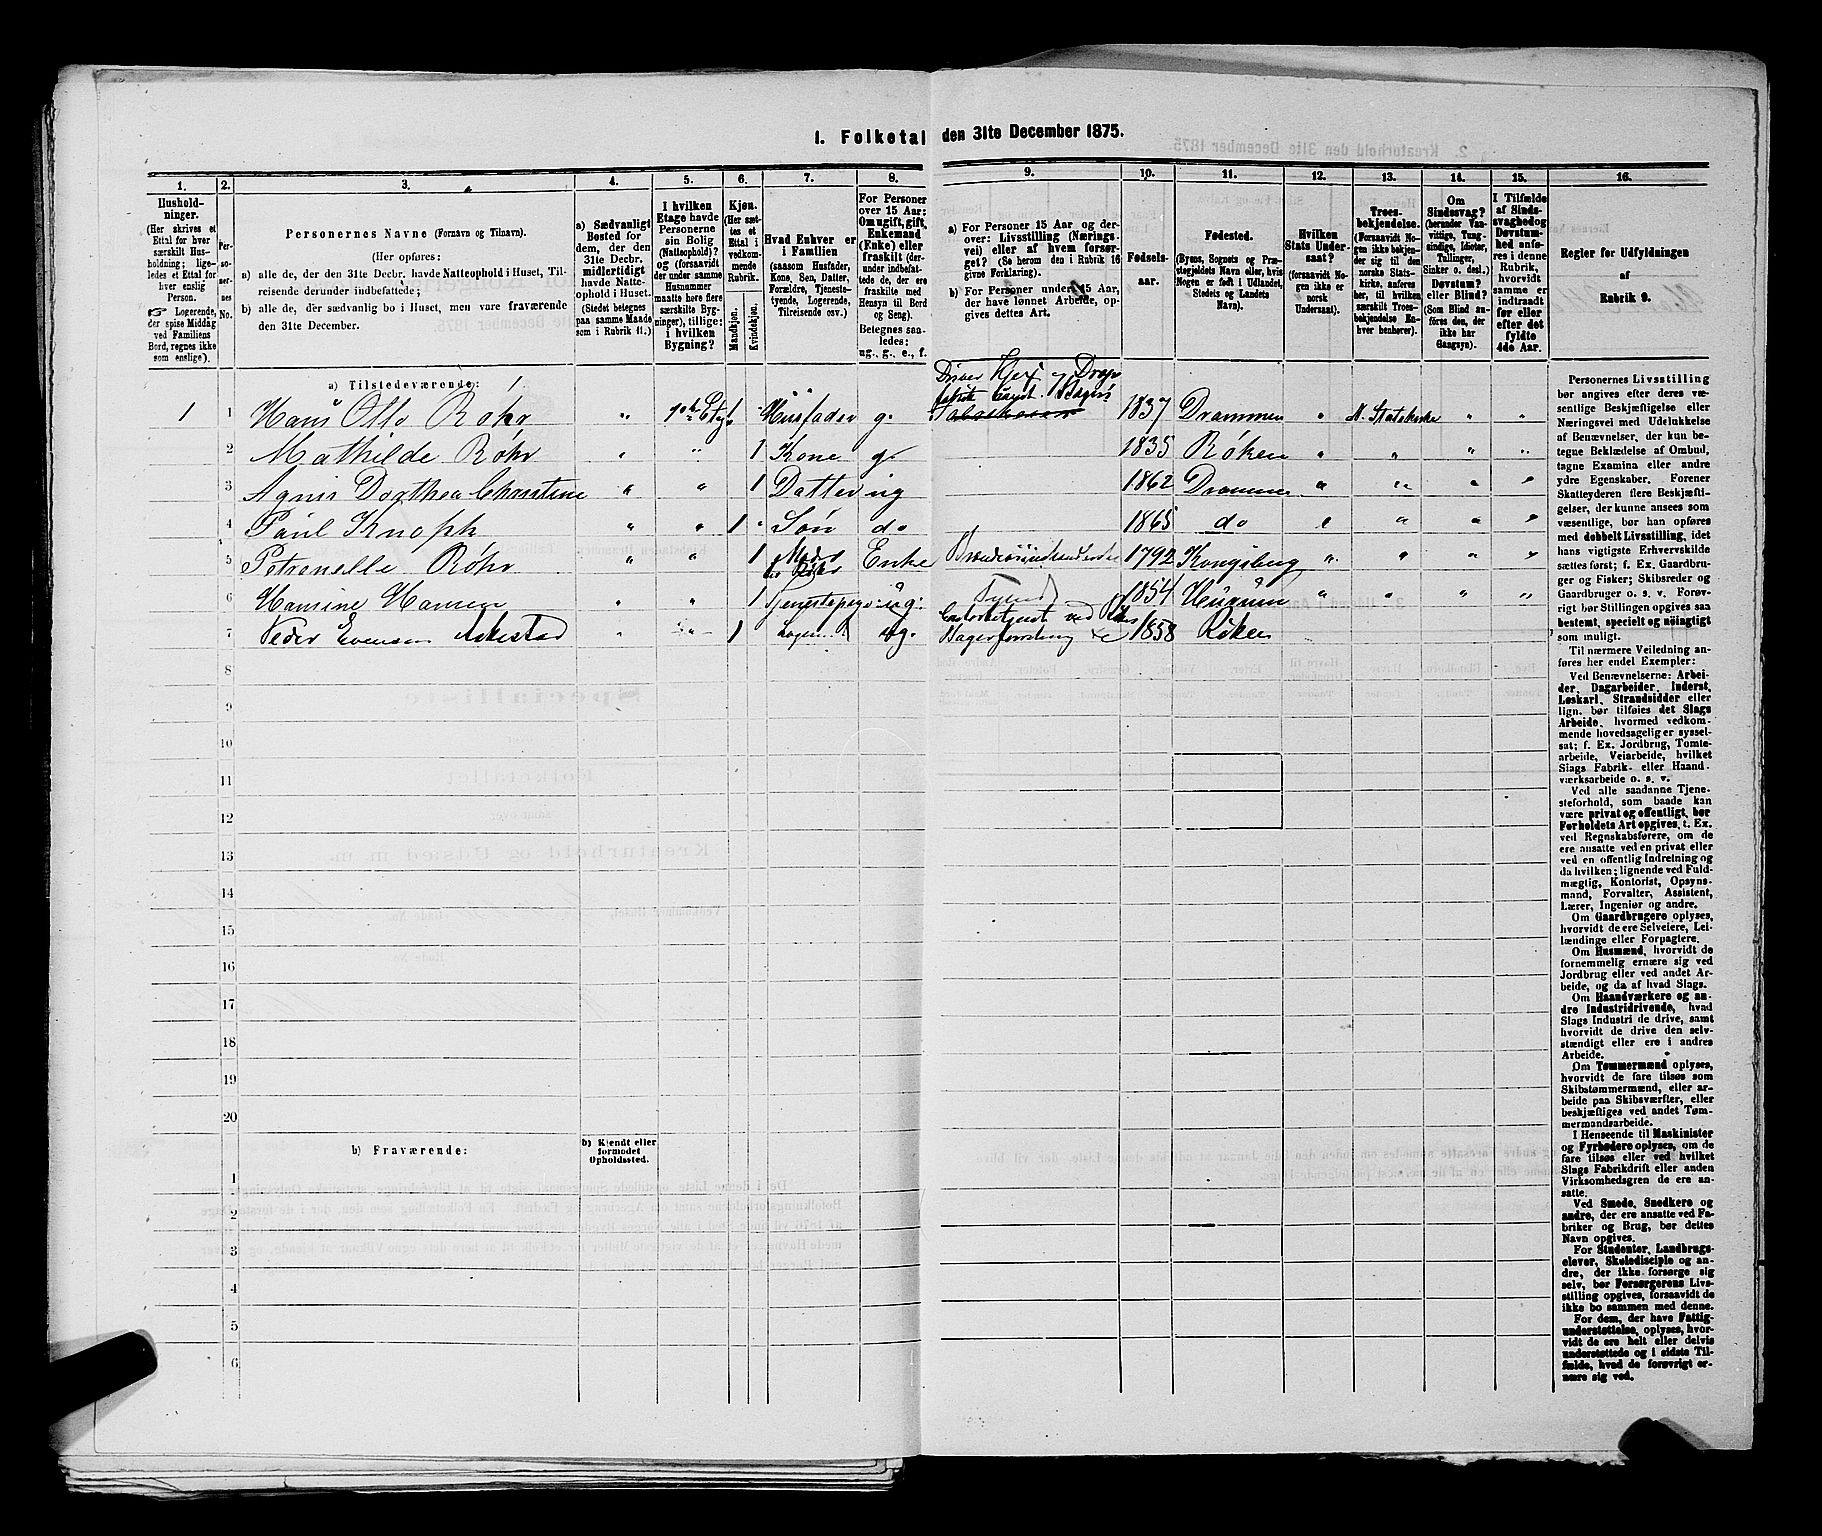 1. Folketal den 31te December 1875.
1. 2. 3. 4. 5. 6. 7. 8. 9. 10. 11. 12. 13. 14. 15. 16.
Hushold-
ninger.
(Her skrives et
Ettal for hver
særskilt Hus-
holdning; lige-
ledes et Ettal for
hver enslig
Person.
☞ Logerende,
der spise Middag
ved Familiens
Bord, regnes ikke
som enslige).
Per-
so-
ner-
nes
No.
Personernes Navne (Fornavn og Tilnavn).
(Her opføres:
a) alle de, der den 31te Decbr. havde Natteophold i Huset, Til-
reisende derunder indbefattede;
b) alle de, der sædvanlig bo i Huset, men vare fraværende
den 31te December.
a) Sædvanligt
Bosted for
dem, der den
31te Decbr.
midlertidigt
havde Natte-
ophold i Huset.
(Stedet betegnes
paa samme Maade
som i Rubrik 11.)
I hvilken
Etage havde
Personerne
sin Bolig
(Natteophold)?
og (forsaavidt
der under samme
Husnummer
maatte høre flere
særskilte Byg-
ninger), tillige:
i hvilken
Bygning?
Kjøn.
(Her sæt-
tes et
Ettal i
vedkom-
mende
Rubrik.
Mandkjøn.
Kvindekjøn.
Hvad Enhver er
i Familien
(saasom Husfader,
Kone, Søn, Datter,
Forældre, Tjeneste-
tyende, Logerende,
Tilreisende osv.)
For Personer
over 15 Aar:
Om ugift, gift,
Enkemand
(Enke) eller
fraskilt (der-
under indbefat-
tede de, der ere
fraskilte med
Hensyn til Bord
og Seng).
Betegnes saa-
ledes:
ug., g., e., f.
a) For Personer 15 Aar og der-
over: Livsstilling (Nærings-
vei) eller af hvem forsør-
get? (Se herom den i Rubrik 16
givne Forklaring).
b) For Personer under 15 Aar,
der have lønnet Arbeide, op-
gives dettes Art.
Fødsels-
aar.
Fødested.
(Byens, Sognets og Præ-
stegjeldets Navn eller, hvis
Nogen er født i Udlandet,
Stedets og Landets
Navn).
Hvilken
Stats Under-
saat?
(forsaavidt No-
gen ikke er
norsk
Undersaat).
Troes-
bekjendelse.
(Forsaavidt No-
gen ikke bekjen-
der sig til den
norske Stats-
kirke, anføres
her, til hvilken
særskilt Troes-
bekjendelse En-
hver henhører).
Om
Sindssvag?
(herunder Van-
vittige, Tung-
sindige, Idioter,
Tullinger,
Sinker o. desl.)
Døvstum?
eller Blind?
(Som Blind an-
føres den, der
ikke har
Gangsyn).
I Tilfælde
af Sinds-
svaghed og
Døvstum-
hed anfø-
res i denne
Rubrik,
hvorvidt
samme er
indtraadt
før eller
efter det
fyldte
4de Aar.
Regler for Udfyldningen
af
Rubrik 9.
a) Tilstedeværende:
1 1 Hans Otto Röhr " Husfader g. 1837 Drammen " N. Statskirke " "
2 Mathilde Röhr " " 1 Kone g. 1835 Röken " " " "
3 Agnis Dorthea Christine " " 1 Datter ug 1862 Drammen " " " "
4 Paul Knoph " " 1 " Søn do 1865 do " " " "
5 Petronelle Röhr " " 1 Moder Enke 1792 Kongsberg " " " "
6 Hansine Hansen " " 1 ug: Tyende 1854 Hurum " " " "
7 Peder Evensen " 1 ug. 1858 Röken
8
9
10
11
12
13
14
15
16
17
18
19
20
b) Fraværende:
b) Kjendt eller
formodet
Opholdssted.
1
2
3
4
5
6
Personernes Livsstilling
bør angives efter deres væ-
sentlige Beskjæftigelse eller
Næringsvei med Udelukkelse
af Benævnelser, der kun be-
tegne Beklædelse af Ombud,
tagne Examina eller andre
ydre Egenskaber. Forener
Skatteyderen flere Beskjæfti-
gelser, der kunne ansees som
væsentlige, bør han opføres
med dobbelt Livsstilling, idet
hans vigtigste Erhvervskilde
sættes først; f. Ex. Gaardbru-
ger og Fisker; Skibsreder og
Gaardbruger o. s. v. Forøv-
rigt bør Stillingen opgives saa
bestemt, specielt og nöiagtigt
som muligt.
Til nærmere Veiledning an-
føres her endel Exempler:
Ved Benævnelserne: Arbei-
der, Dagarbeider, Inderst,
Løskarl, Strandsidder eller
lign. bør tilføies det Slags
Arbeide, hvormed vedkom-
mende hovedsagelig er syssel-
sat; f. Ex. Jordbrug, Tomte-
arbeide, Veiarbeide, hvilket
Slags Fabrik- eller Haand-
værksarbeide o. s. v.
Ved alle saadanne Tjene-
steforhold, som baade kan
være privat og offentligt, bør
Forholdets Art opgives, t. Ex.
ved Regnskabsførere, om de
ere ansatte ved en privat eller
ved en offentlig Indretning og
da hvilken; lignende ved Fuld-
mægtig, Kontorist, Opsyns-
mand, Forvalter, Assistent,
Lærer, Ingeniør og andre.
Om Gaardbrugere oplyses,
hvorvidt de ere Selveiere, Lei-
lændinge eller Forpagtere.
Om Husmænd, hvorvidt de
fornemmelig ernære sig ved
Jordbrug eller ved andet Ar-
beide, og da af hvad Slags.
Om Haandværkere og an-
dre Industridrivende, hvad
Slags Industri de drive, samt
hvorvidt de drive den selv-
stændigt eller ere i andres
Arbeide.
Om Tømmermænd oplyses,
hvorvidt de fare tilsøs som
Skibstømmermænd, eller ar-
beide paa Skibsværfter, eller
beskjæftiges ved andet Tøm-
mermandsarbeide.
I Henseende til Maskinister
og Fyrbødere oplyses, om de
fare tilsøs eller ved hvilket
Slags Fabrikdrift eller anden
Virksomhedsgren de ere an-
satte.
Ved Smede, Snedkere og
andre, der ere ansatte ved Fa-
briker og Brug, bør dettes
Navn opgives.
For Studenter, Landbrugs-
elever, Skoledisciple og an-
dre, der ikke forsørge sig
selv, bør Forsørgerens Livs-
stilling opgives, forsaavidt de
ikke bo sammen med denne.
For dem, der have Fattig-
understøttelse, oplyses, hvor-
vidt de ere helt eller delvis
understøttede og i sidste Til-
fælde, hvad de forøvrigt er-
nære sig ved.